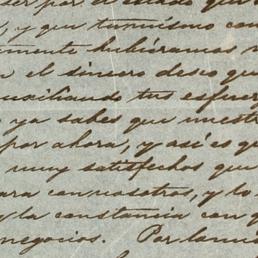 ser por el estado que
, y que tu mismo con
mente hubieramos
el sincero deseo que
auxiliando tus esfuerz
ya sabes que nuestr
por ahora, y asi es qu
muy satisfechos que
para con nosotros, y lo
y la constancia con q
negocios. Por lo mis